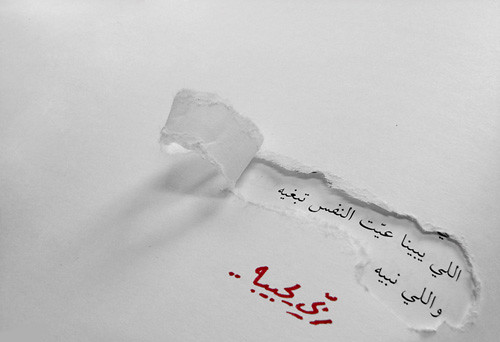 اللي يبينا عيّت النفس تبغيه
واللي نبيه
ربّي يجيبه ..